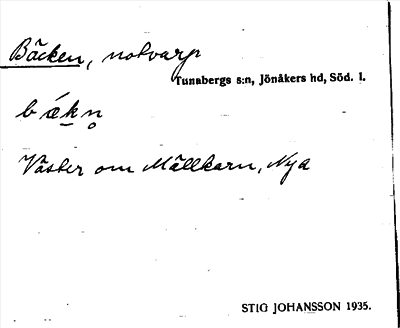 Bäcken, notvarp
Tunabergs s:n, Jönåkers hd, Söd. l.
bäkn̥
Väster om Mällkarn, Nya
STIG JOHANSSON 1935.